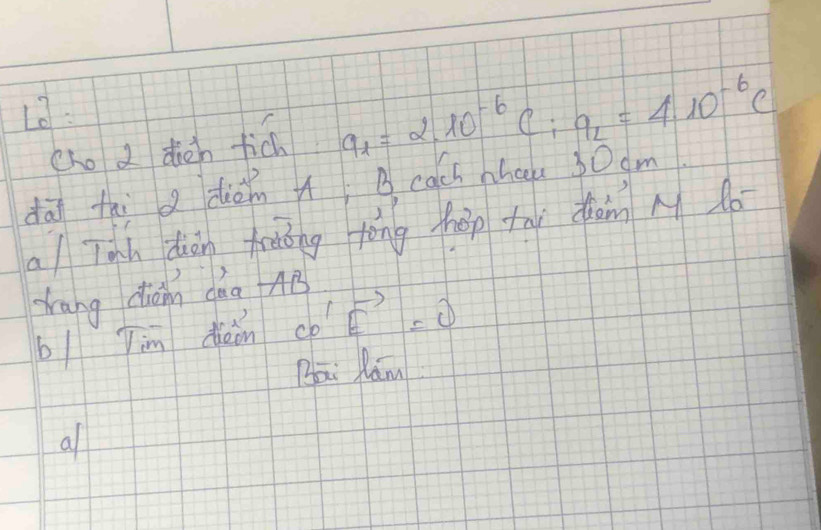 Lỏ:
Cho 2 điện tích q₁ = 2.10⁻⁶ C; q₂ = 4.10⁻⁶ C
đặt tại 2 điểm A; B cách nhau 30cm.
a/ Tính điện trường tổng hợp tại điểm M là
trung điểm của AB
b/ Tìm điểm có E⃗ = 0
Bài làm
a/